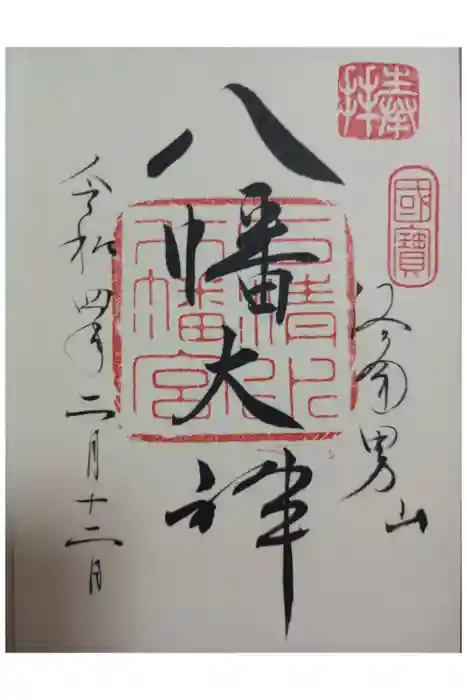 奉拝
國寶
洛南男山
八幡大神
石清水
八幡宮
令和四年二月十二日